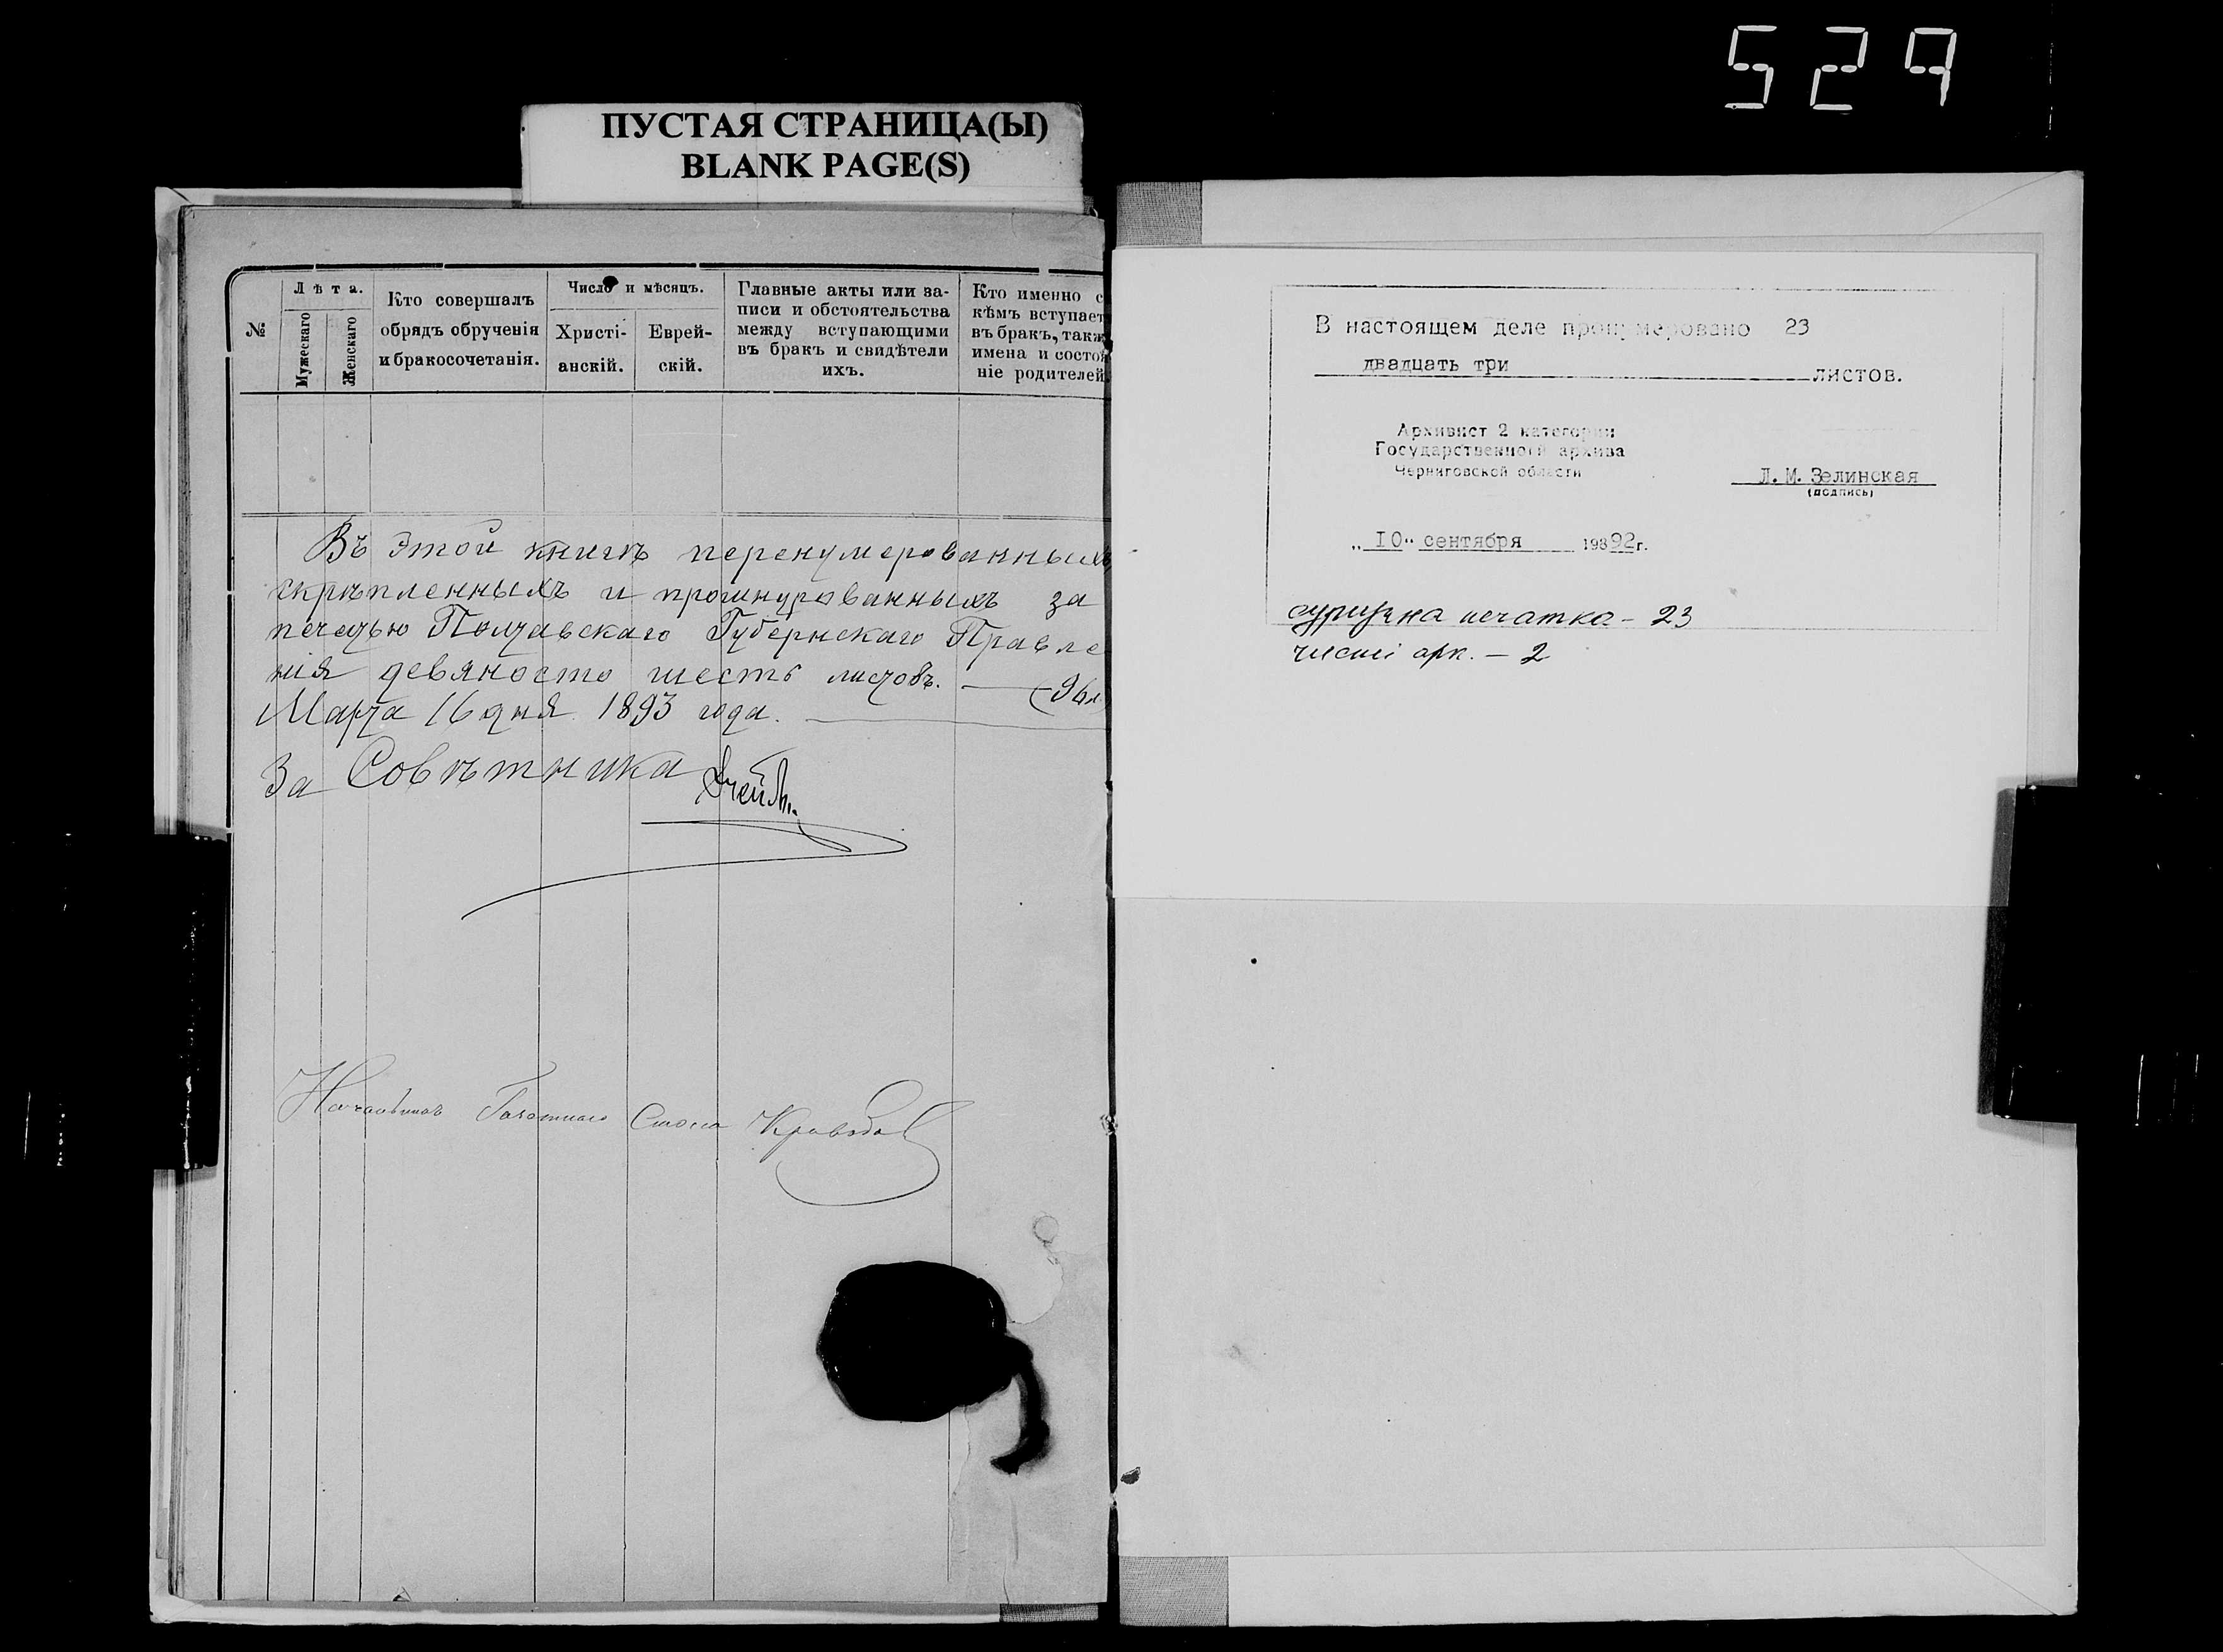 529
ПУСТАЯ СТРАНИЦА(Ы)
BLANK PAGE(S)
№
Лѣта.
Мужескаго
Женскаго
Кто совершалъ
обрядъ обрученія
и бракосочетанія.
Число и мѣсяцъ.
Христі-
анскій.
Еврей-
скій.
Главные акты или за-
писи и обстоятельства
между вступающими
въ бракъ и свидѣтели
ихъ.
Кто именно с
кѣмъ вступает
въ бракъ, такж
имена и состоя
ніе родителей
Въ этой книгѣ перенумерованныхъ
скрѣпленныхъ и прошнурованныхъ за
печатью Полтавскаго Губернскаго Правле
нія девяносто шесть листовъ. — (96 л)
Марта 16 дня 1893 года.
За Совѣтника
Начальникъ Газетнаго Стола
В настоящем деле пронумеровано 23
двадцать три листов.
Архивист 2 категории
Государственного архива
Черниговской области
Л. М. Зелинская
(подпись)
„10" сентября 19892г.
сургучна печатка - 23
чисті арк. - 2